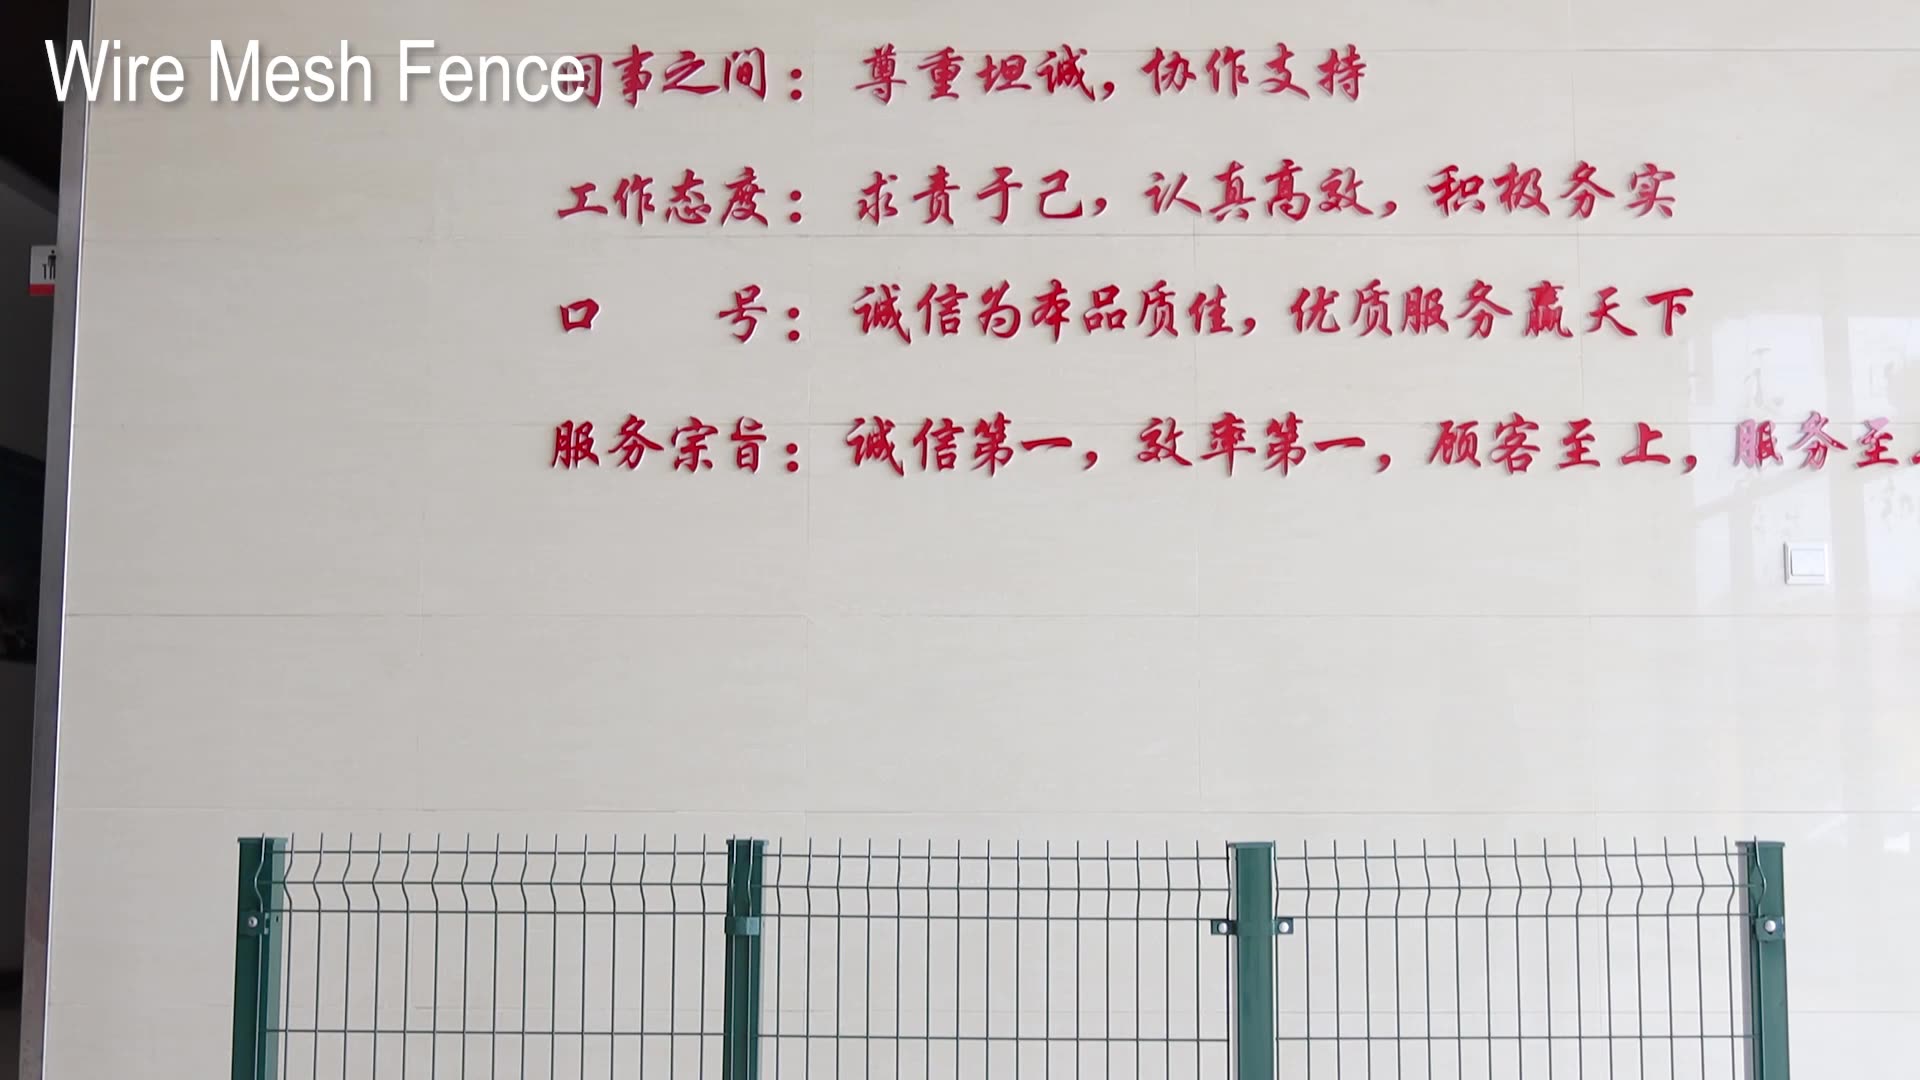 Wire Mesh Fence
同事之间：尊重坦诚，协作支持
工作态度：求责于己，认真高效，积极务实
口号：诚信为本品质佳，优质服务赢天下
服务宗旨：诚信第一，效率第一，顾客至上，服务至